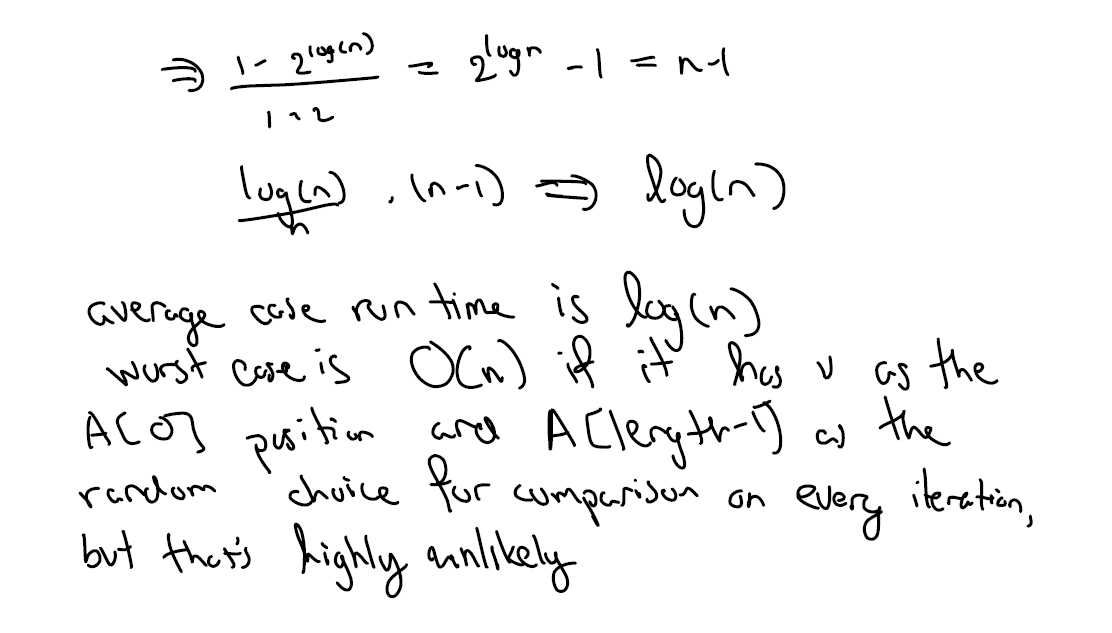 ⇒ (1 - 2^log(n)) / (1 - 2) = 2^log n - 1 = n-1
log(n)/n . (n-1) ⇒ log(n)
average case run time is log(n)
worst case is O(n) if it has v as the
A[0] position and A[length-1] as the
random choice for comparison on every iteration,
but that's highly unlikely